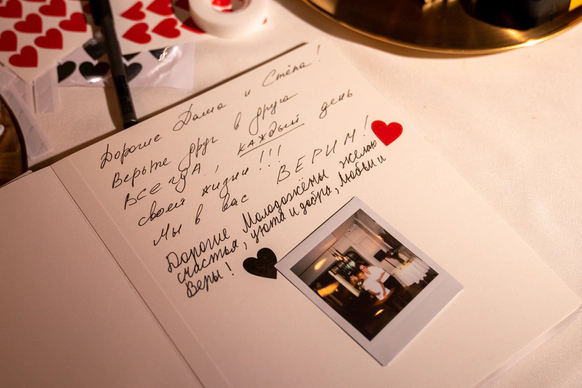 Дорогие Даша и Стёпа!
Верьте друг в друга
ВСЕГДА, КАЖДЫЙ день
своей жизни!!!
Мы в вас ВЕРИМ!
Дорогие Молодожёны желаю
счастья, уюта и добра, Любви и
Веры!